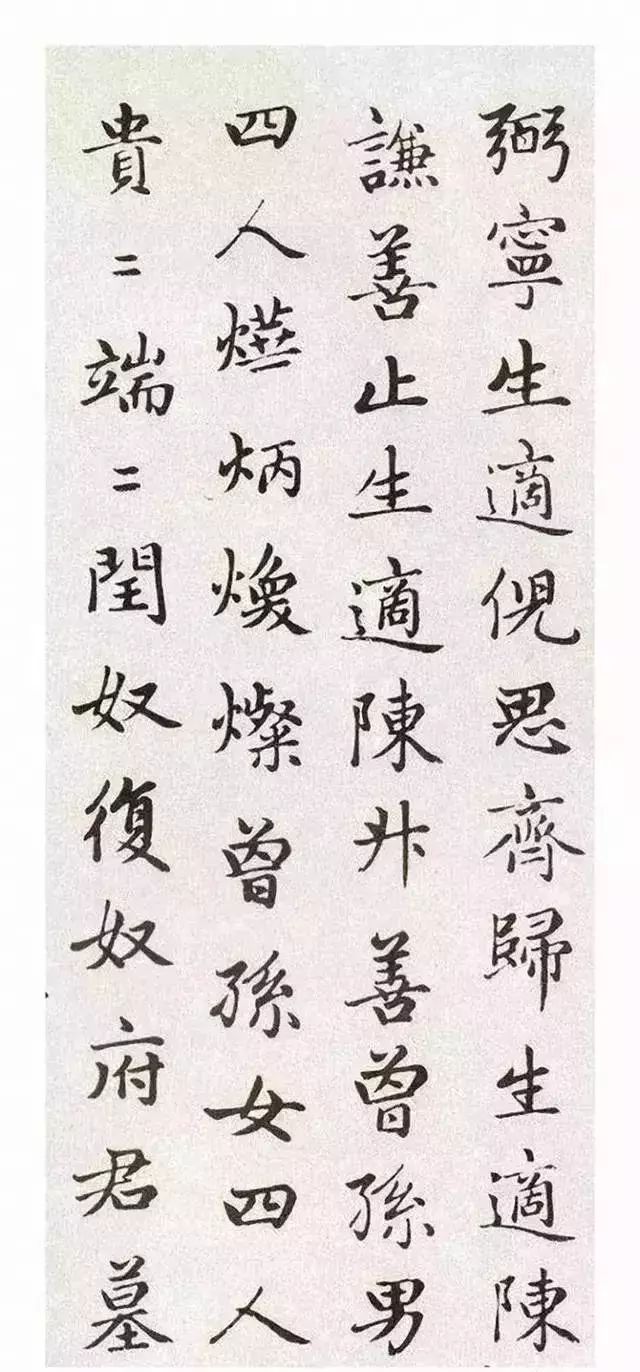 弼寧生適倪思齊歸生適陳
謙善止生適陳升善曾孫男
四人燁炳煥燦曾孫女四人
貴二端二閏奴復奴府君墓